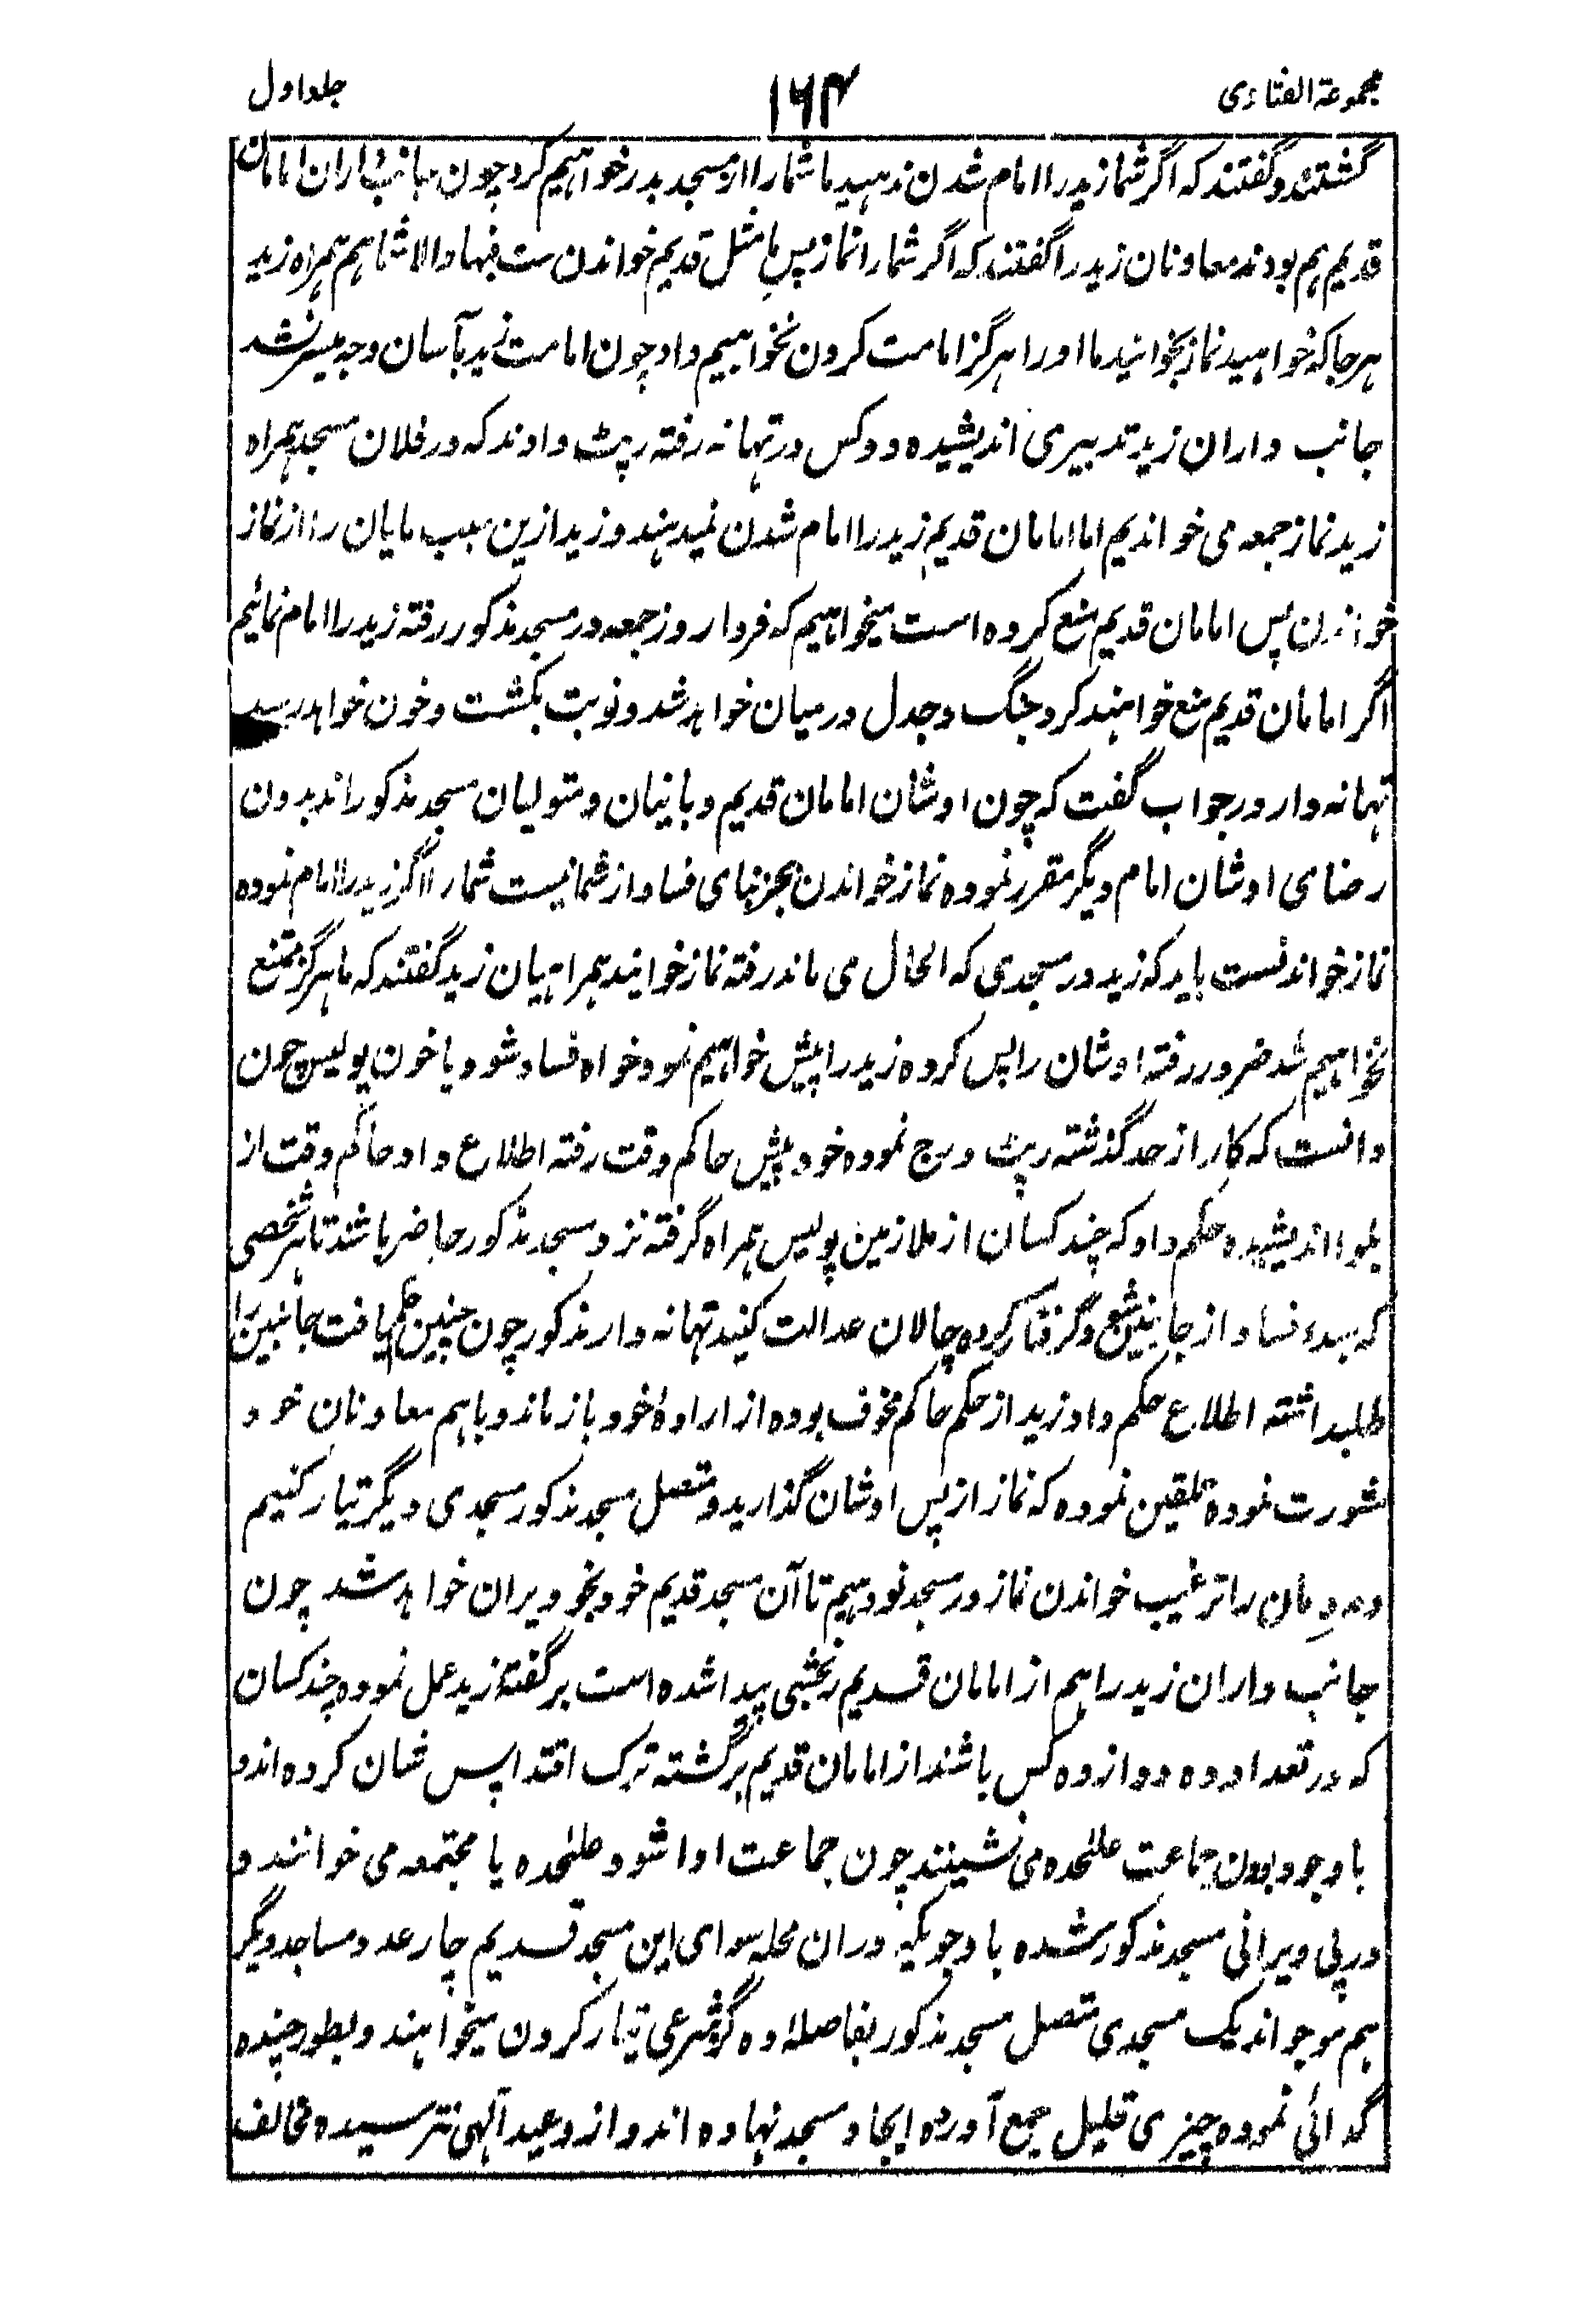 مجموعة الفتاوی
۱۶۴
جلد اول
گشتند و گفتند که اگر شما زید را امام شدن ندهید ما شما را از مسجد بدر خواهیم کرد چون جانبداران امامان
قدیم هم بودند معاونان زید را گفتند که اگر شما را نماز پس ما مثل قدیم خواندن ست فبها والا شما هم همراه زید
هر جا که خواهید نماز بخوانید ما او را هرگز امامت کردن نخواهیم داد چون امامت زید بآسان وجه میسر نشد
جانب داران زید تدبیری اندیشیده دو کس در تهانه رفته رپٹ دادند که در فلان مسجد همراه
زید نماز جمعه می خواندیم اما امامان قدیم زید را امام شدن نمیدهند و زید ازین سبب مایان را از نماز
خواندن پس امامان قدیم منع کرده است میخواهیم که فردا روز جمعه در مسجد مذکور رفته زید را امام نمائیم
اگر امامان قدیم منع خواهند کرد جنگ و جدل درمیان خواهد شد و نوبت بکشت و خون خواهد رسید
تهانه دار در جواب گفت که چون اوشان امامان قدیم و بانیان و متولیان مسجد مذکور اند بدون
رضای اوشان امام دیگر مقرر نموده نماز خواندن بجز بنای فساد از شما نیست شما را اگر زید را امام نموده
نماز خواندنست باید که زید در مسجدی که الحال می ماند رفته نماز خوانید همراهیان زید گفتند که ما هرگز ممتنع
نخواهیم شد ضرور رفته اوشان را پس کرده زید را پیش خواهیم نمود خواه فساد شود یا خون پولیس چون
دانست که کار از حد گذشته رپٹ درج نموده خود پیش حاکم وقت رفته اطلاع داد حاکم وقت از
بلوا اندیشیده حکم داد که چند کسان از ملازمین پولیس همراه گرفته نزد مسجد مذکور حاضر باشند تا هر شخصی
که مبدء فساد از جانبین شود گرفتار کرده چالان عدالت کنید تهانه دار مذکور چون چنین حکم یافت جانبین را
طلبداشته اطلاع حکم داد زید از حکم حاکم مخوف بوده از ارادهٔ خود باز ماند و باهم معاونان خود
مشورت نموده تلقین نموده که نماز از پس اوشان گذارید و متصل مسجد مذکور مسجدی دیگر تیار کنیم
و مردمان را ترغیب خواندن نماز در مسجد نو دهیم تا آن مسجد قدیم خود بخود ویران خواهد شد چون
جانب داران زید را هم از امامان قدیم رنجشی پیدا شده است بر گفتهٔ زید عمل نموده چند کسان
که در تعداد ده دوازده کس باشند از امامان قدیم برگشته ترک اقتدا پس شان کرده اند و
با وجود بودن جماعت علٰحده می نشینند چون جماعت ادا شود علٰحده یا مجتمعه می خوانند و
در پی ویرانی مسجد مذکور شده با وجودیکه دران محله سوای این مسجد قدیم چار عدد مساجد دیگر
هم موجود اند یک مسجدی متصل مسجد مذکور بفاصلهٔ ده گز شرعی تیار کردن میخواهند و بطور چنده
گدائی نموده چیزی قلیل جمع آورده ایجاد مسجد نهاده اند و از وعید آلهی نترسیده مخالف